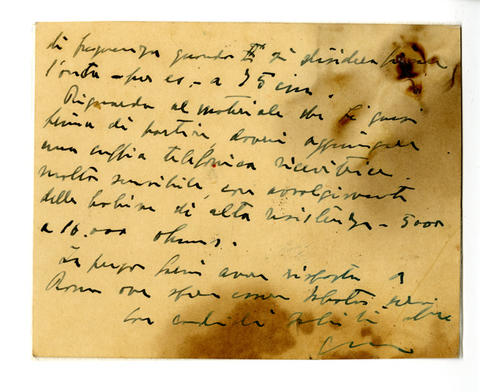 di frequenza quando si desidera
l'onda - per es. - a 75 cm.
Riguardo al materiale che
prima di partire dovrei aggiungere
una cuffia telefonica ricevitrice
molto sensibile, con avvolgimenti
delle bobine di alta resistenza - 5000
a 10.000 ohms.
La prego farmi avere risposta a
Roma ove
con cordiali saluti